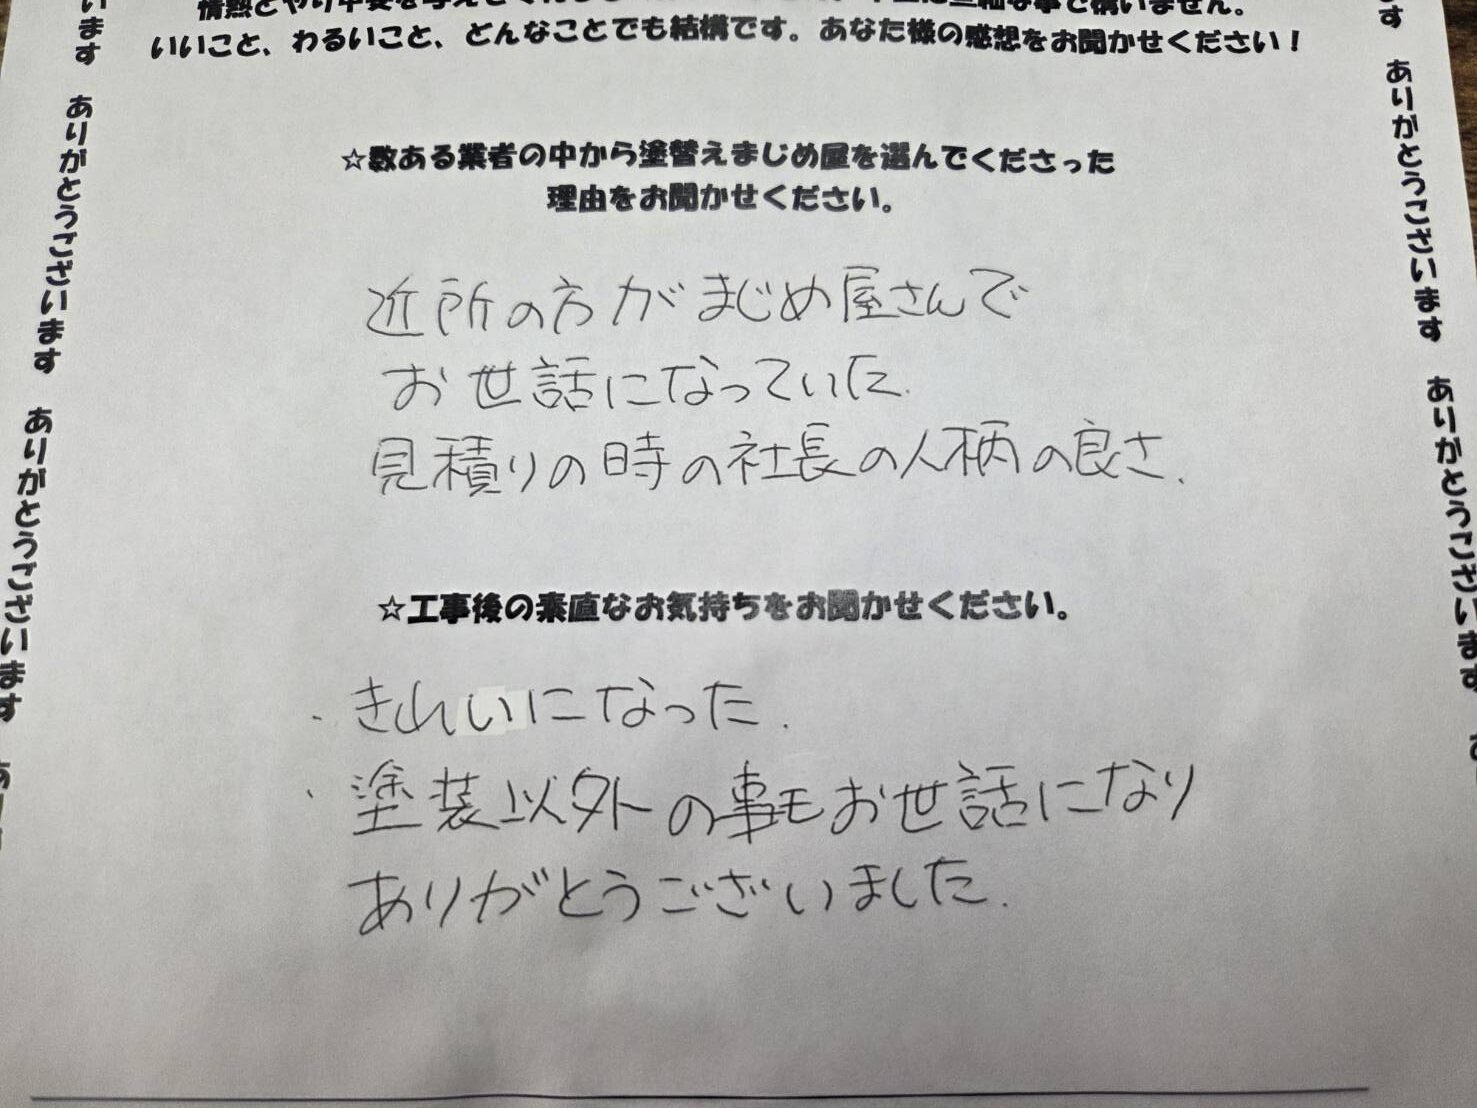 いいこと、わるいこと、どんなことでも結構です。あなた様の感想をお聞かせください！
☆数ある業者の中から塗替えまじめ屋を選んでくださった
理由をお聞かせください。
近所の方がまじめ屋さんで
お世話になっていた.
見積りの時の社長の人柄の良さ.
☆工事後の素直なお気持ちをお聞かせください。
・きれいになった.
・塗装以外の事もお世話になり
ありがとうございました.
います ありがとうございます ありがとうございます あ
す ありがとうございます ありがとうございます